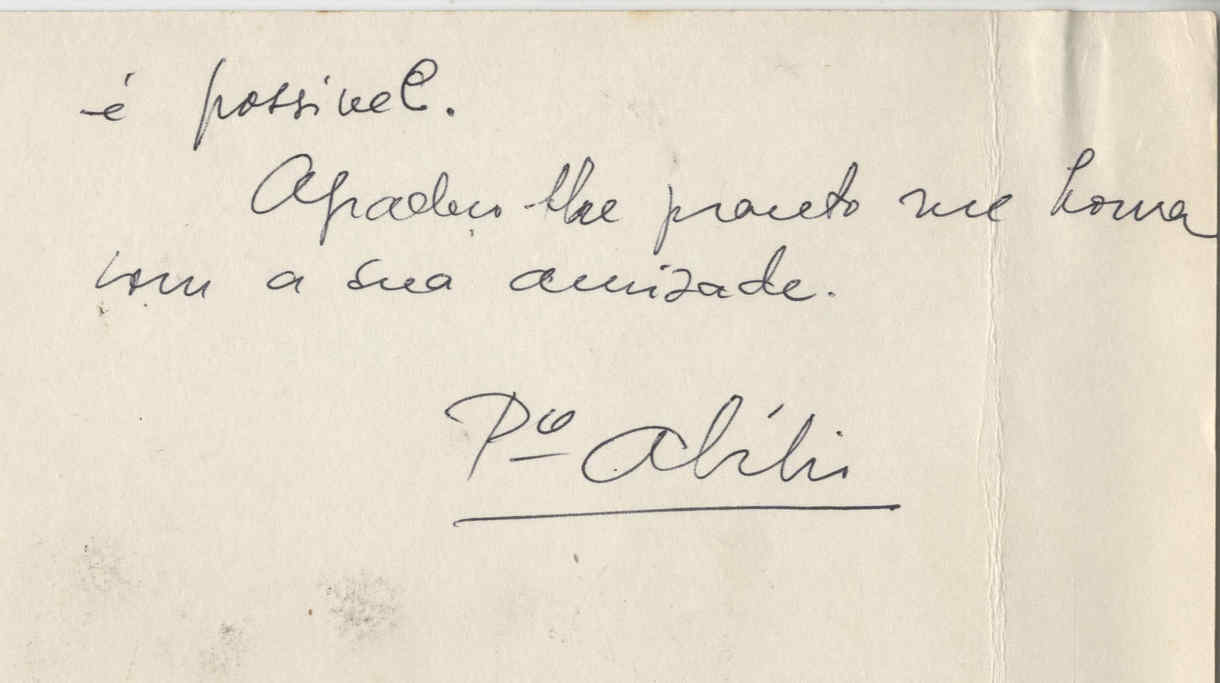 é possivel.
Agradeço-lhe quanto me honra
com a sua amizade.
Pe Abílio